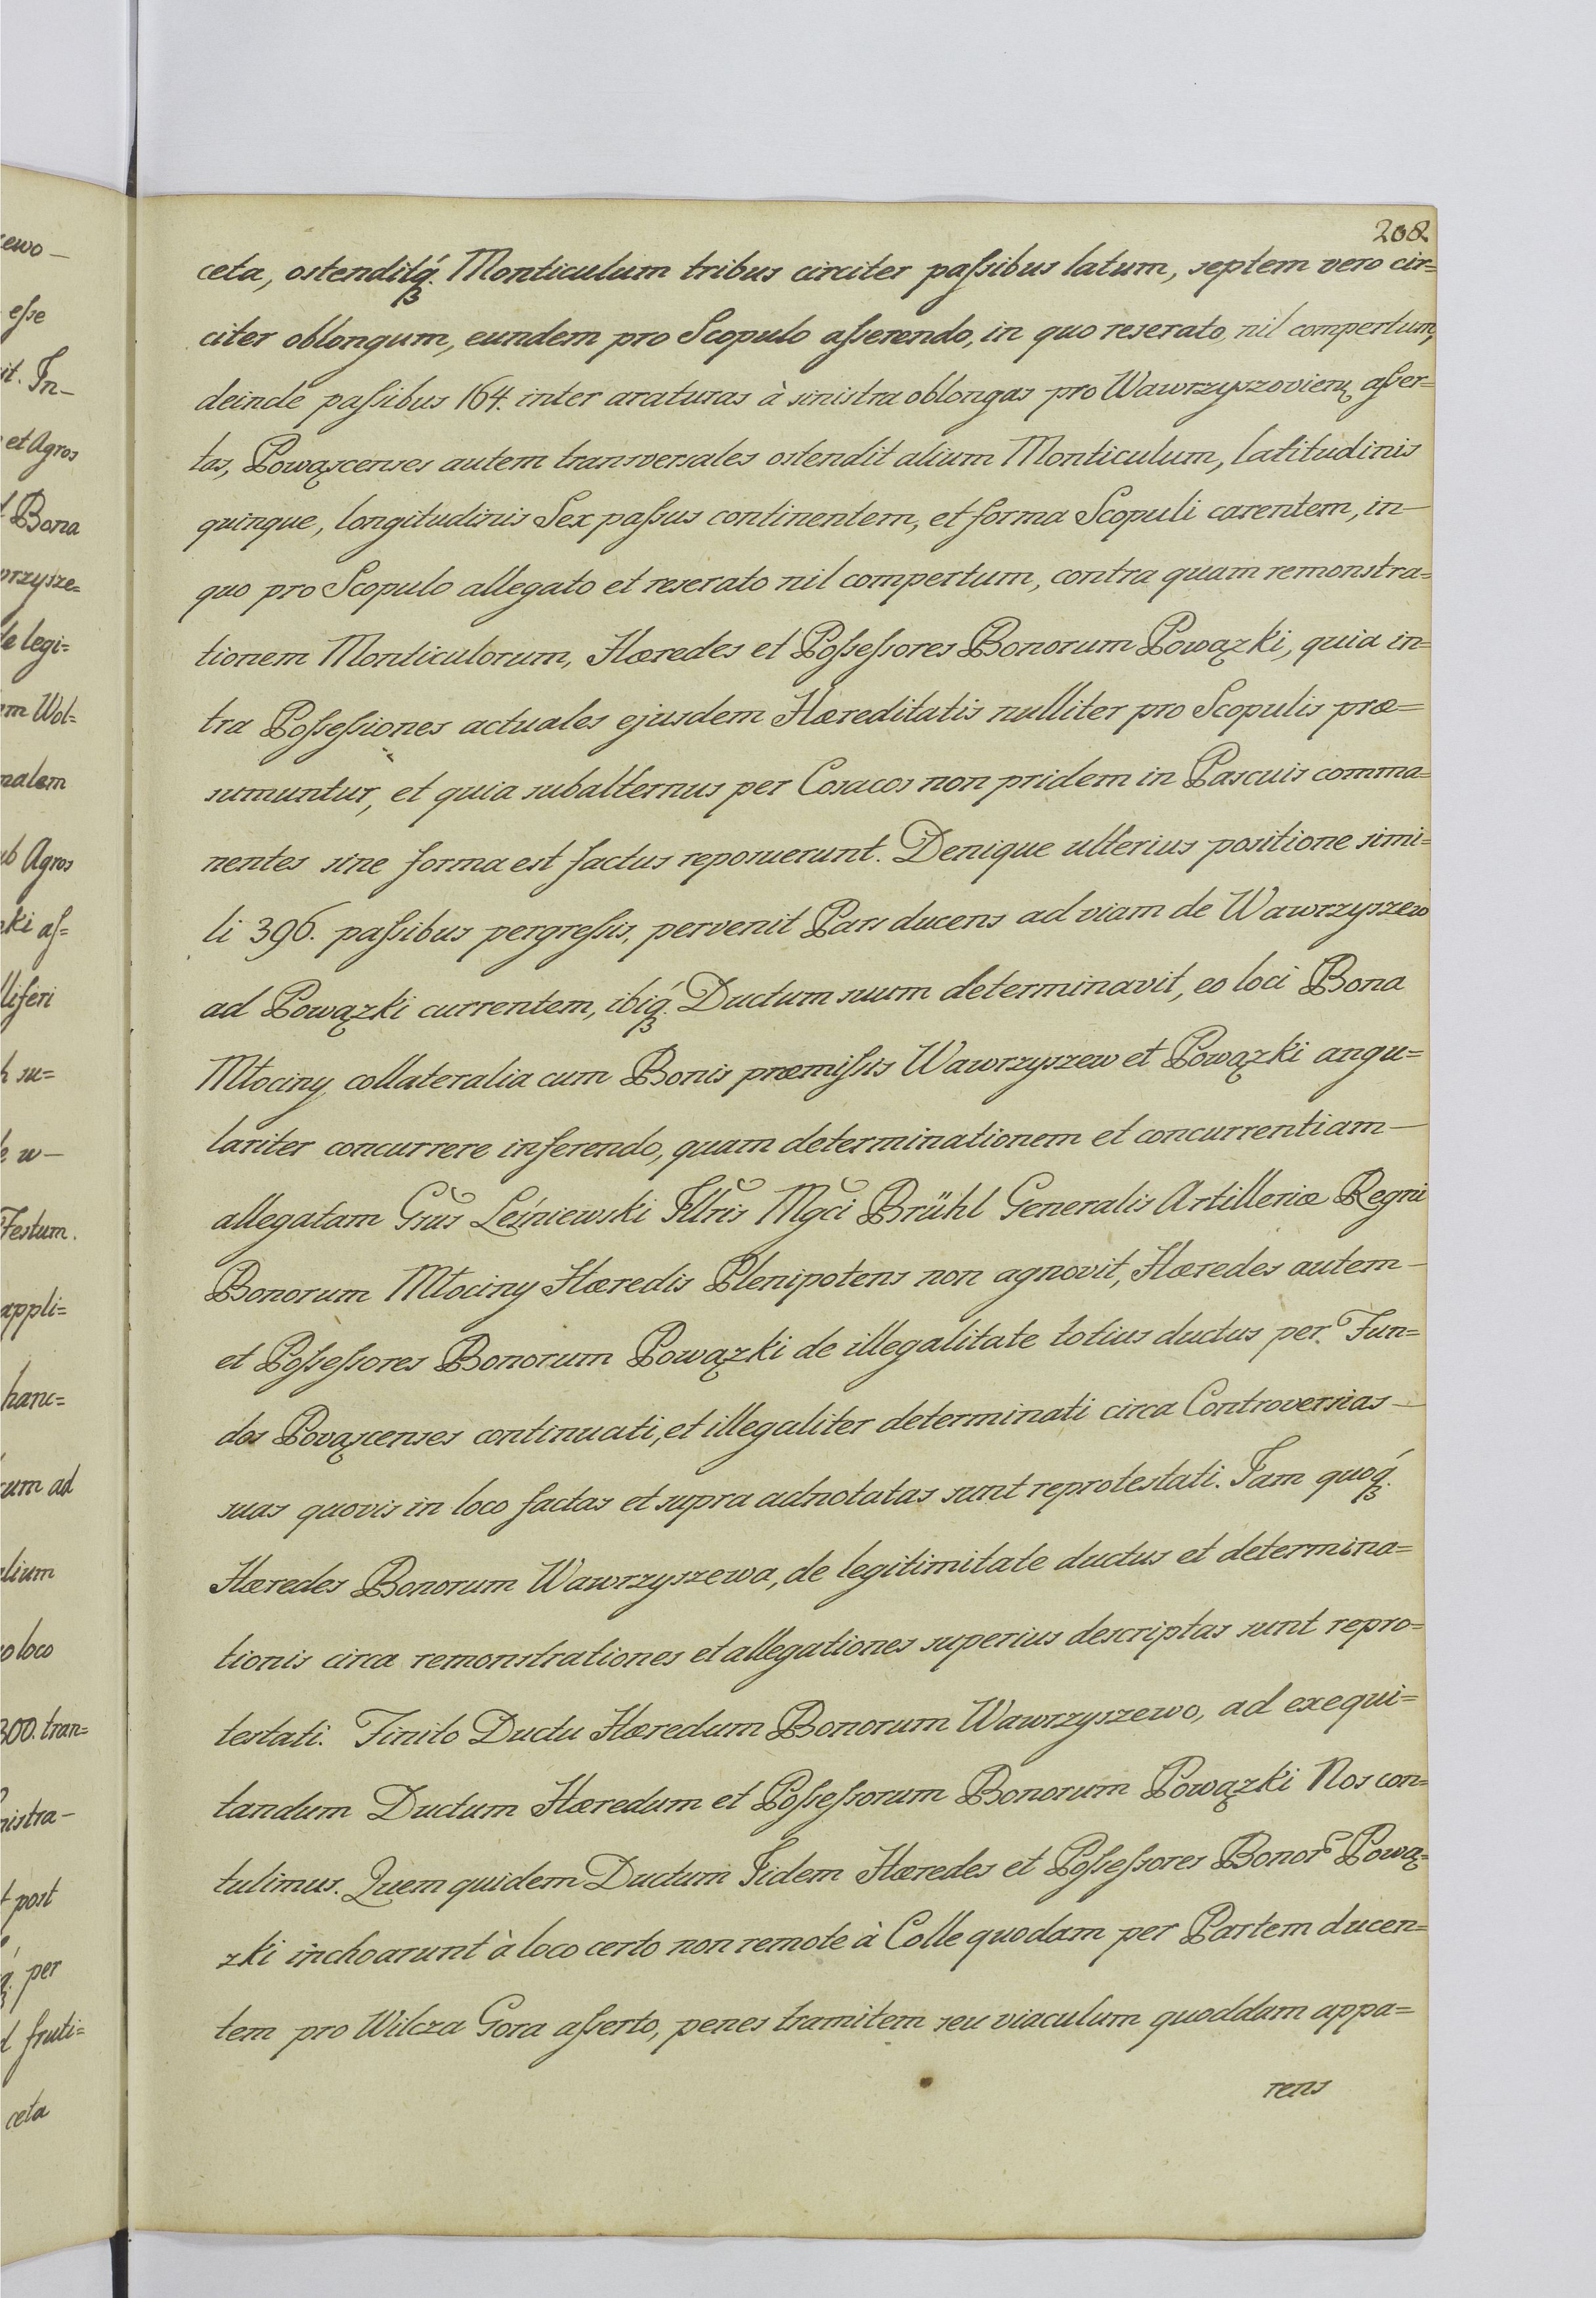 208
ceta, ostenditq́ꝫ. Monticulum tribus circiter paſsibus latum, septem vero cir=
citer oblongum, eundem pro Scopulo aſserendo, in quo reserato nil compertum,
deinde paſsibus 164. inter araturas à sinistra oblongas pro Wawrzyszovien aſser=
tas, Powązcenses autem transversales ostendit alium Monticulum, latitudinis
quinque, longitudinis Sex paſsus continentem, et forma Scopuli carentem, in—
quo pro Scopulo allegato et reserato nil compertum, contra quam remonstra=
tionem Monticulorum, Hæredes et Poſseſsores Bonorum Powązki, quia in=
tra Poſseſsiones actuales ejusdem Hæreditatis nulliter pro Scopulis præ=
sumuntur, et quia subalternus per Cosacos non pridem in Pascuis comma=
nentes sine forma est factus reposuerunt. Denique ulterius positione simi=
li 396. paſsibus pergreſsis, pervenit Pars ducens ad viam de Wawrzyszew
ad Powązki currentem, ibiq́ꝫ. Ductum suum determinavit, eo loci Bona
Młociny collateralia cum Bonis præmiſsis Wawrzyszew et Powązki angu=
lariter concurrere inferendo, quam determinationem et concurrentiam—
allegatam Gsus Leśniewski Illris Mgci Brühl Generalis Artilleriæ Regni
Bonorum Młociny Hæredis Plenipotens non agnovit, Hæredes autem—
et Poſseſsores Bonorum Powązki de illegalitate totius ductus per Fun=
dos Povązcenses continuati, et illegaliter determinati circa Controversias—
suas quovis in loco factas et supra adnotatas sunt reprotestati. Iam quoq́ꝫ.
Hæredes Bonorum Wawrzyszewa, de legitimitate ductus et determina=
tionis circa remonstrationes et allegationes superius descriptas sunt repro=
testati. Finito Ductu Hæredum Bonorum Wawrzyszewo, ad exequi=
tandum Ductum Hæredum et Poſseſsorum Bonorum Powązki Nos con=
tulimus. Quem quidem Ductum Iidem Hæredes et Poſseſsores Bonor Pową=
zki inchoarunt à loco certo non remote à Colle quodam per Partem ducen=
tem pro Wilcza Gora aſserto, penes tramitem seu viaculum quoddam appa=
rens
ewo—
eſse
it. In—
et Agros
Bona
rzysze=
le legi=
m Wol=
nalem
ub Agros
ki aſ=
lliferi
h su=
e w—
Festum.
appli=
hanc=
cum ad
lium
o loco
300. tran=
nistra—
post
q. per
fruti=
ceta